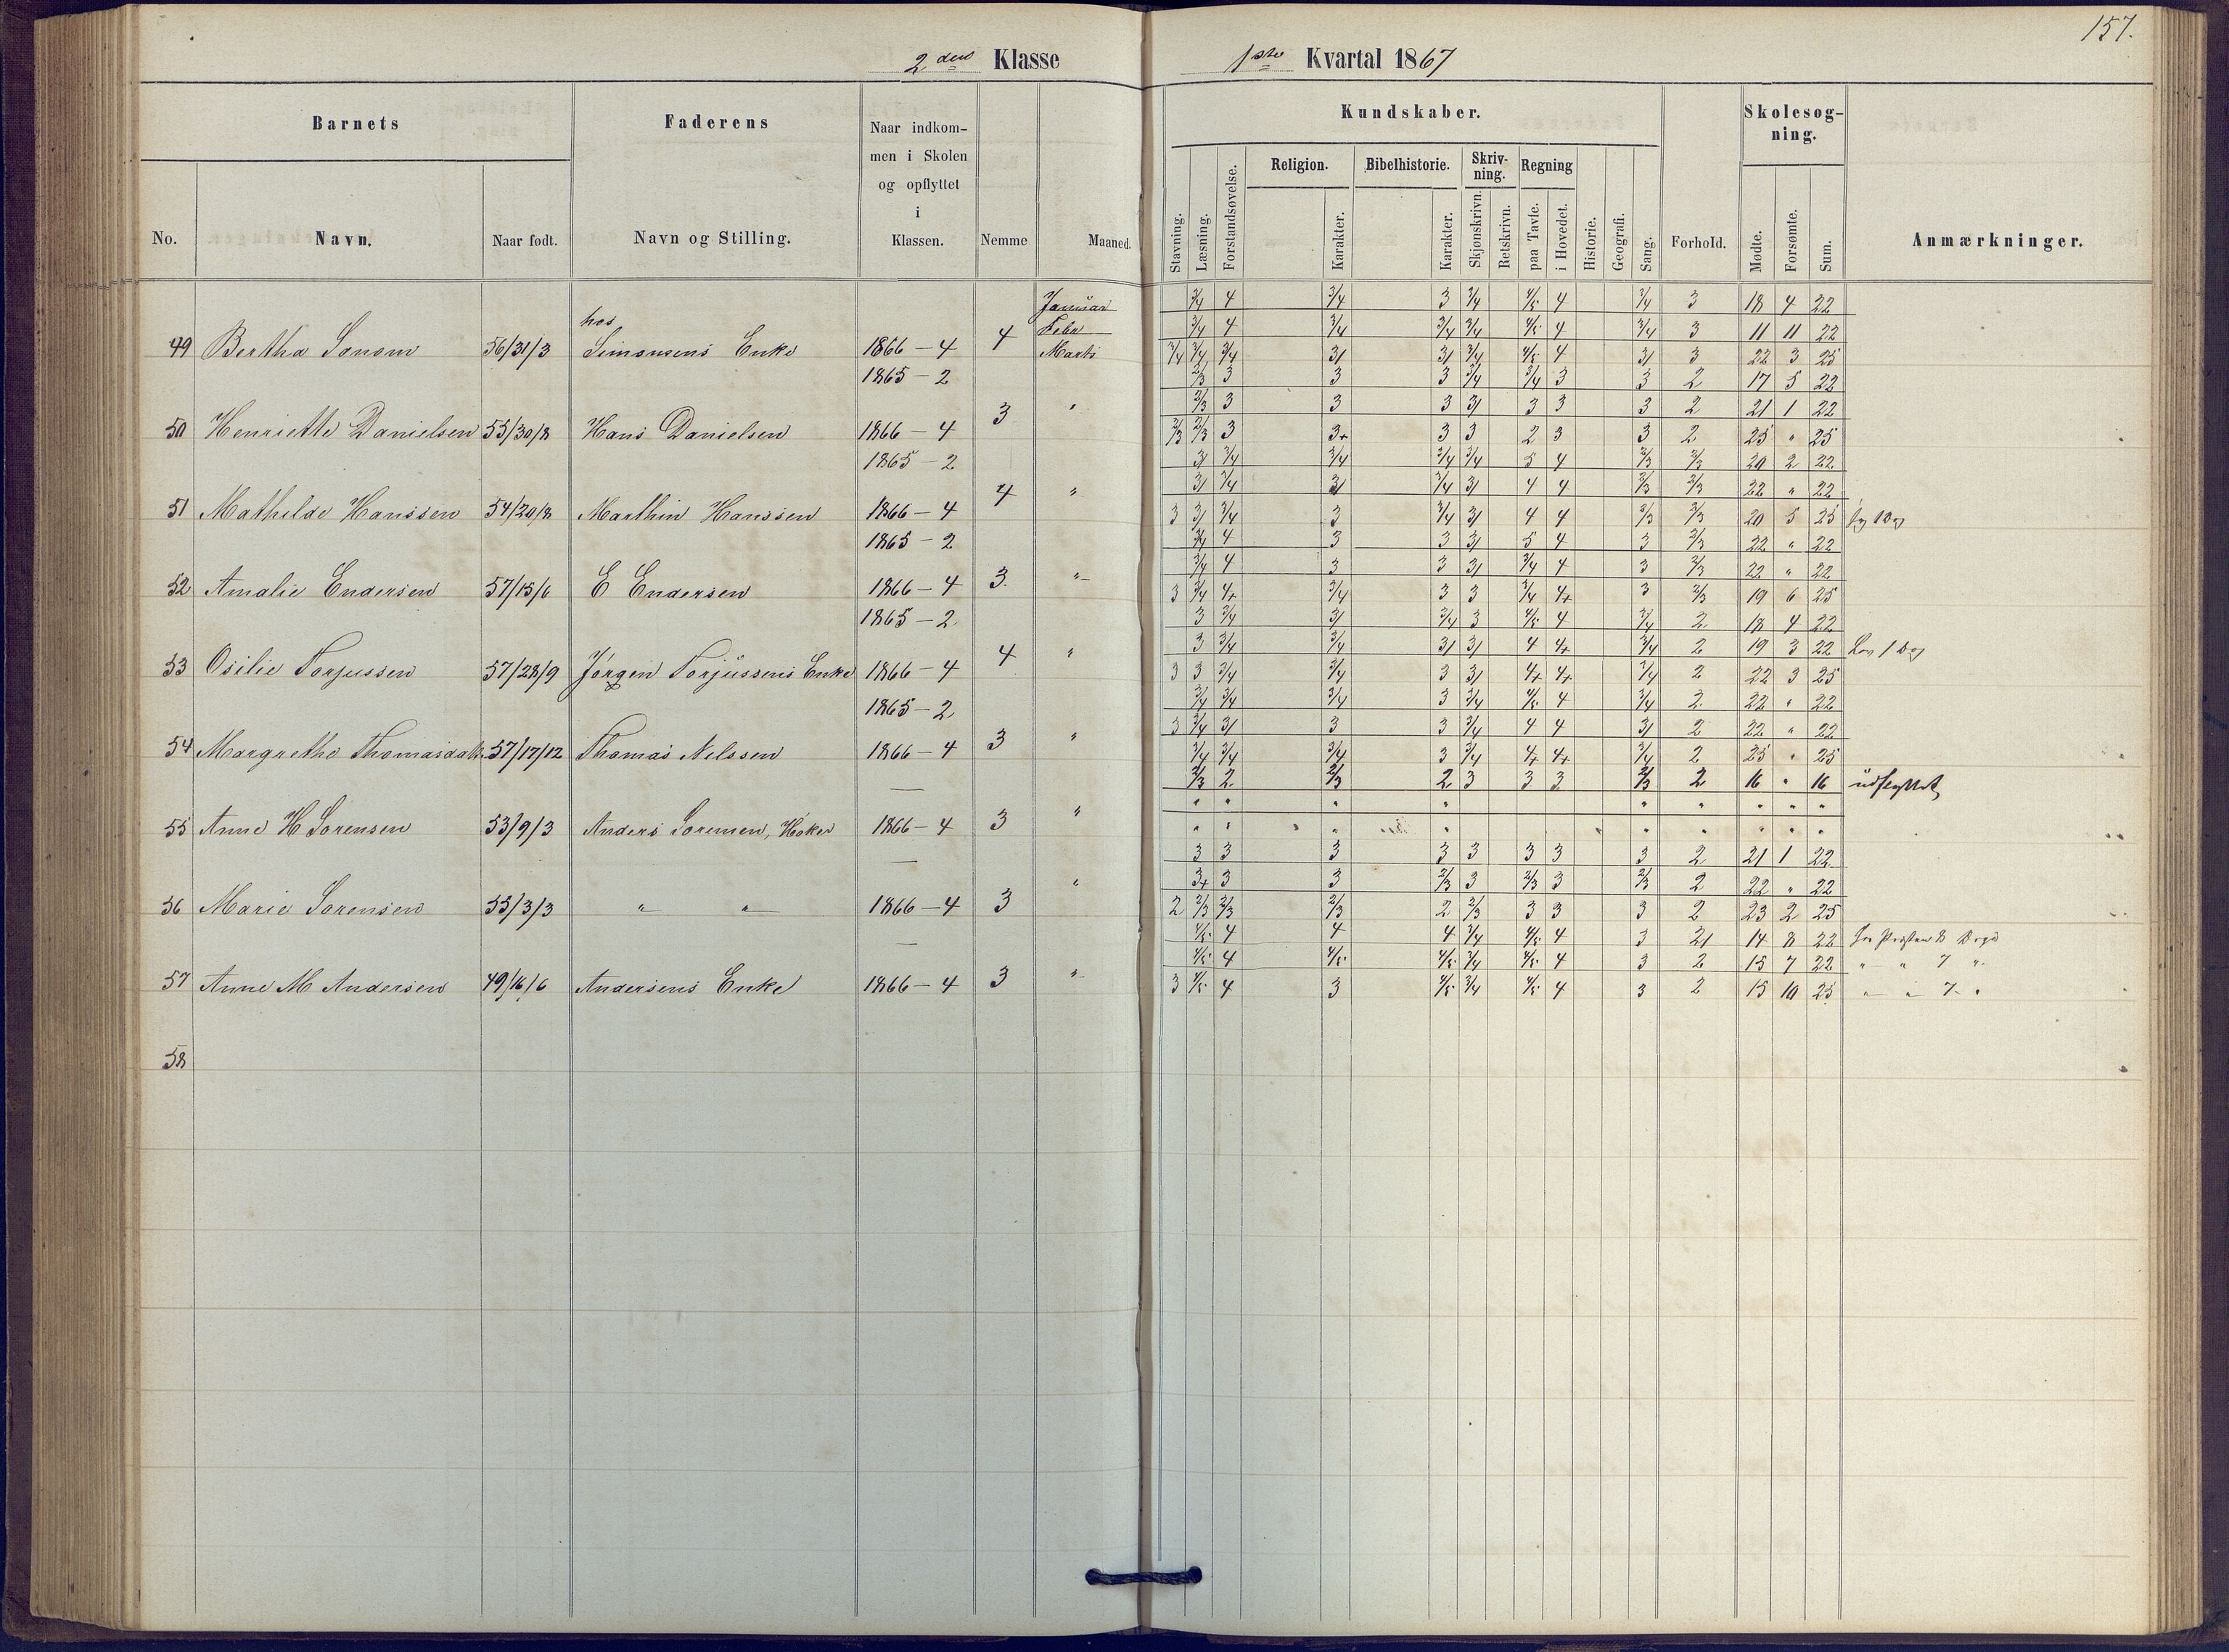 157.
2den Klasse
1ste Kvartal 1867
Barnets
Faderens
Naar indkom-
men i Skolen
og opflyttet
i
Klassen.
Nemme
Maaned.
No.
Navn.
Naar født.
Navn og Stilling.
Kundskaber.
Skolesøg-
ning.
Religion.
Bibelhistorie.
Skriv-
ning.
Regning
Stavning.
Læsning.
Forstandsøvelse.
Karakter.
Karakter.
Skjønskrivn.
Retskrivn.
paa Tavle.
i Hovedet.
Historie.
Geografi.
Sang.
Forhold.
Mødte.
Forsømte.
Sum.
Anmærkninger.
Januar 3/4 4 3/4 3 3/4 4/5 4 3/4 3 18 4 22
hos
Febr 3/4 4 3/4 3/4 3/4 4/5 4 3/4 3 11 11 22
49 Bertha 56/31/3 Simonsens Enke 1866-4 4 Marts 3/4 3/4 3/4 3/ 3/ 3/4 4/5 4 3/ 3 22 3 25
1865-2 2/3 3 3 3 3/4 3/4 3 3 2 17 5 22
2/3 3 3 3 3/ 3 3 3 2 21 1 22
50 Henriette Danielsen 55/30/8 Hans Danielsen 1866-4 3 " 2/3 2/3 3 3+ 3 3 2 3 3 2 25 " 25
1865-2 3/ 3/4 3/4 3/4 3/4 5 4 2/3 2/3 20 2 22
3/ 3/4 3/ 3/4 3/ 4 4 2/3 2/3 22 " 22
51 Mathilde Hanssen 54/20/8 Marthin Hanssen 1866-4 4 " 3 3/ 3/4 3 3/4 3/ 4 4 2/3 2/3 20 5 25
1865-2 3/4 4 3 3 3/ 5 4 3 2/3 22 " 22
3/4 4 3 3 3/ 3/4 4 3 2/3 22 " 22
52 Amalie Endersen 57/15/6 E Endersen 1866-4 3. " 3 3/4 4+ 3/4 3 3 3/4 4+ 3 2/3 19 6 25
1865-2 3 3/4 3/ 3/4 3 4/5 4 3/4 2 18 4 22
3 3/4 3/4 3/ 3/ 4 4+ 3/4 2 19 3 22 Lov 1 Dag
53 Osilie Torjussen 57/28/9 Jørgen Torjussens Enke 1866-4 4 " 3 3 3/4 3/4 3 3/ 4+ 4+ 3/4 2 22 3 25
1865-2 3/4 3/4 3/4 3 3/4 4/5 4 3/4 2 22 " 22
3 3/4 3/ 3 3 3/4 4 4 3/ 2 22 " 22
54 Margrethe 57/17/12 Thomas Nilssen 1866-4 3 " 3/4 3/4 3/4 3 3/4 4+ 4+ 3/4 2 25 " 25
— 2/3 2 2/3 2 3 3 3 2/3 2 16 " 16 udflyttet
" " " " " " " " "
55 Anne H Sørensen 53/9/3 Anders Sørensen, Høker 1866-4 3 " " " " " " " " " "
— 3 3 3 3 3 3 3 3 2 21 1 22
3+ 3 3 2/3 3 2/3 3 2/3 2 22 " 22
56 Marie Sørensen 55/3/3 " " 1866-4 3 " 2 2/3 2/3 2/3 2 2/3 3 3 3 2 23 2 25
— 4/5 4 4 4 3/4 4/5 4 3 2/ 14 8 22 for Præsten 8 Dage
4/5 4 4/5 4/5 3/4 4/5 4 3 2 15 7 22 " " 7 "
57 Anne M Andersen 49/16/6 Andersens Enke 1866-4 3 " 3 4/5 4 3 4/5 3/4 4/5 4 3 2 15 10 25 " " 7 "
58